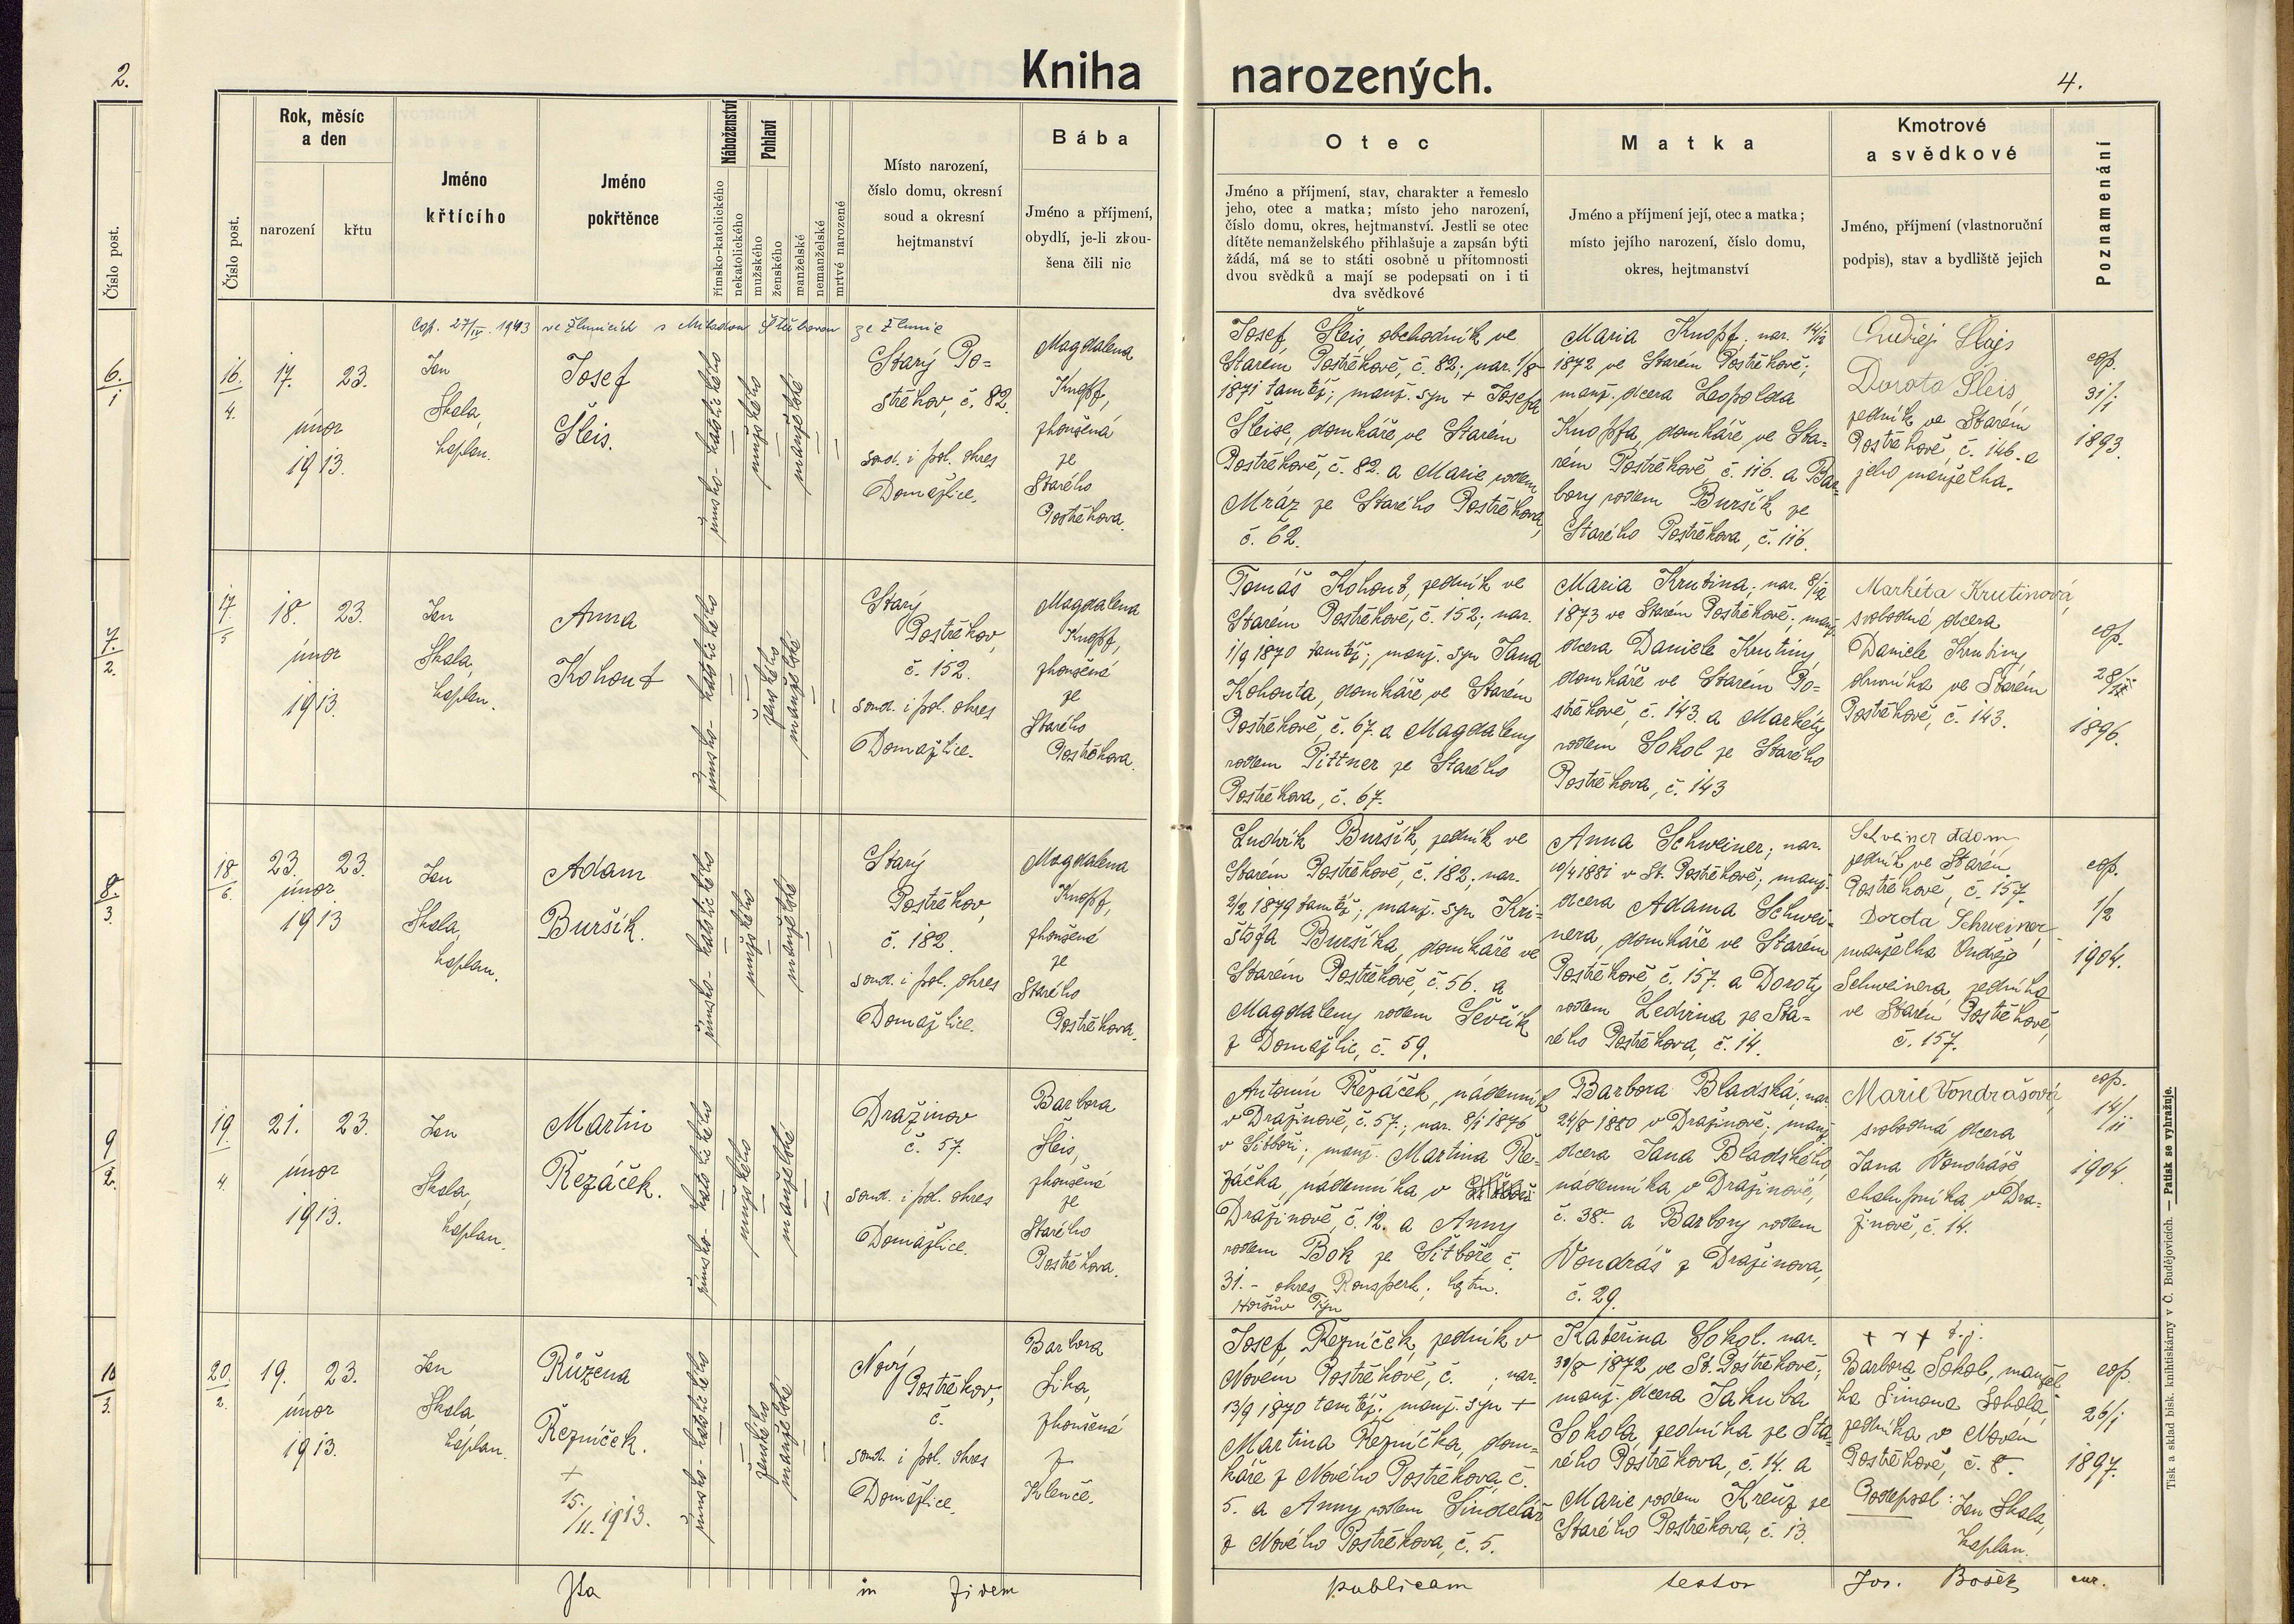 2.
Kniha narozených.
4.
Číslo post.
Číslo post.
Rok, měsíc
a den
narození
křtu
Jméno
křtícího
Jméno
pokřtěnce
Náboženství
římsko-katolického
nekatolického
Pohlaví
mužského
ženského
manželské
nemanželské
mrtvě narozené
Místo narození,
číslo domu, okresní
soud a okresní
hejtmanství
Bába
Jméno a příjmení,
obydlí, je-li zkou-
šena čili nic
Otec
Jméno a příjmení, stav, charakter a řemeslo
jeho, otec a matka; místo jeho narození,
číslo domu, okres, hejtmanství. Jestli se otec
dítěte nemanželského přihlašuje a zapsán býti
žádá, má se to státi osobně u přítomnosti
dvou svědků a mají se podepsati on i ti
dva svědkové
Matka
Jméno a příjmení její, otec a matka;
místo jejího narození, číslo domu,
okres, hejtmanství
Kmotrové
a svědkové
Jméno, příjmení (vlastnoruční
podpis), stav a bydliště jejich
Poznamenání
6./1
7./2.
8./3.
9/2.
10/3.
Cop. 27/IV. 1943 ve Žlunicích s Miladou Štěrbovou ze Žlunic
16./4.
17. 23.
únor
1913.
Jan
Skala,
kaplan.
Josef
Šleis.
římsko-katolického
mužského
manželské
Starý Po-
střekov, č. 82.
soud. i pol. okres
Domažlice.
Magdalena
Knopf,
zkoušená
ze
Starého
Postřekova.
Josef Šleis, obchodník ve
Starém Postřekově, č. 82; nar. 1/8
1871 tamtéž; manž. syn + Josefa
Šleise, domkáře ve Starém
Postřekově, č. 82. a Marie rodem
Mráz ze Starého Postřekova,
č. 62.
Maria Knopf; nar. 14/12
1872 ve Starém Postřekově;
manž. dcera Leopolda
Knopfa, domkáře ve Sta-
rém Postřekově č. 116. a Bar-
bory rodem Buršík ze
Starého Postřekova, č. 116.
Ondřej Šlajs
Dorota Šleis,
sedník ve Starém
Postřekově, č. 146. a
jeho manželka.
cop.
31/1
1893.
17./5
18. 23.
únor
1913.
Jan
Skala,
kaplan.
Anna
Kohout
římsko-katolického
ženského
manželské
Starý
Postřekov,
č. 152.
soud. i pol. okres
Domažlice.
Magdalena
Knopf,
zkoušená
ze
Starého
Postřekova.
Tomáš Kohout, sedník ve
Starém Postřekově, č. 152; nar.
1/9 1870 tamtéž; manž. syn Jana
Kohouta, domkáře ve Starém
Postřekově, č. 67. a Magdaleny
rodem Pittner ze Starého
Postřekova, č. 67.
Maria Krutina; nar. 8/12
1873 ve Starém Postřekově; manž.
dcera Daniele Krutiny,
domkáře ve Starém Po-
střekově, č. 143. a Markéty
rodem Sokol ze Starého
Postřekova, č. 143
Markéta Krutinová,
svobodná dcera
Daniele Krutiny,
ve Starém
Postřekově, č. 143.
cop.
1896.
18/6.
23. 23.
únor
1913
Jan
Skala,
kaplan.
Adam
Buršík.
římsko-katolického
mužského
manželské
Starý
Postřekov,
č. 182.
soud. i pol. okres
Domažlice.
Magdalena
Knopf,
zkoušená
ze
Starého
Postřekova.
Ludvík Buršík, sedník ve
Starém Postřekově, č. 182; nar.
2/2 1879 tamtéž; manž. syn Kri-
štofa Buršíka, domkáře ve
Starém Postřekově, č. 56. a
Magdaleny rodem Ševčík
z Domažlic, č. 59.
Anna Schweiner; nar.
10/4 1881 v St. Postřekově; manž.
dcera Adama Schwei-
nera, domkáře ve Starém
Postřekově, č. 157. a Doroty
rodem Ledvina ze Sta-
rého Postřekova, č. 14.
Schveiner Adam
sedník ve Starém
Postřekově, č. 157.
Dorota Schweiner
manželka Ondřeje
Schweinera, sedníka
ve Starém Postřekově,
č. 157.
cop.
1/2
1904.
19./4.
21. 23.
únor
1913.
Jan
Skala,
kaplan.
Martin
Řezáček.
římsko-katolického
mužského
manželské
Dražinov
č. 57.
soud. i pol. okres
Domažlice.
Barbora
Šleis,
zkoušená
ze
Starého
Postřekova.
Antonín Řezáček, nádenník
v Dražinově, č. 57.; nar. 8/1 1876
v Sítboři; manž. Martina Ře-
záčka, nádenníka v
Dražinově, č. 12. a Anny
rodem Bok ze Sítboře, č.
31. - okres Ronsperk; hejtm.
Horšův Týn
Barbora Bladská; nar.
24/8 1880 v Dražinově; manž.
dcera Jana Bladského,
nádenníka v Dražinově,
č. 38. a Barbory rodem
Vondráš z Dražinova,
č. 29.
Marie Vondrášová,
svobodná dcera
Jana Vondráše
chalupníka v Dra-
žinově, č. 14.
cop.
14/11
1904.
20./2.
19. 23.
únor
1913.
Jan
Skala,
kaplan.
Růžena
Řezníček.
+
15./11. 1913.
římsko-katolického
ženského
manželské
Nový
Postřekov,
č.
soud. i pol. okres
Domažlice.
Barbora
zkoušená
z
Klenče.
Josef Řezníček, sedník v
Novém Postřekově, č. ; nar.
13/9 1870 tamtéž; manž. syn +
Martina Řezníčka, dom-
káře z Nového Postřekova, č.
5. a Anny rodem Šindelář
z Nového Postřekova, č. 5.
Kateřina Sokol. nar.
30/8 1872 ve St. Postřekově;
manž. dcera Jakuba
Sokola, sedníka ze Sta-
rého Postřekova, č. 14. a
Marie rodem Kreuz ze
Starého Postřekova, č. 13.
+ + + t. j.
Barbora Sokol, manžel-
ka Šimona Sokola,
sedníka v Novém
Postřekově, č. 8.
Podepsal: Jan Skala,
kaplan.
cop.
26/1
1897.
Ita in fidem publicam testor Jos. Bošek, cur.
Tisk a sklad bisk. knihtiskárny v Č. Budějovicích. — Patisk se vyhražuje.